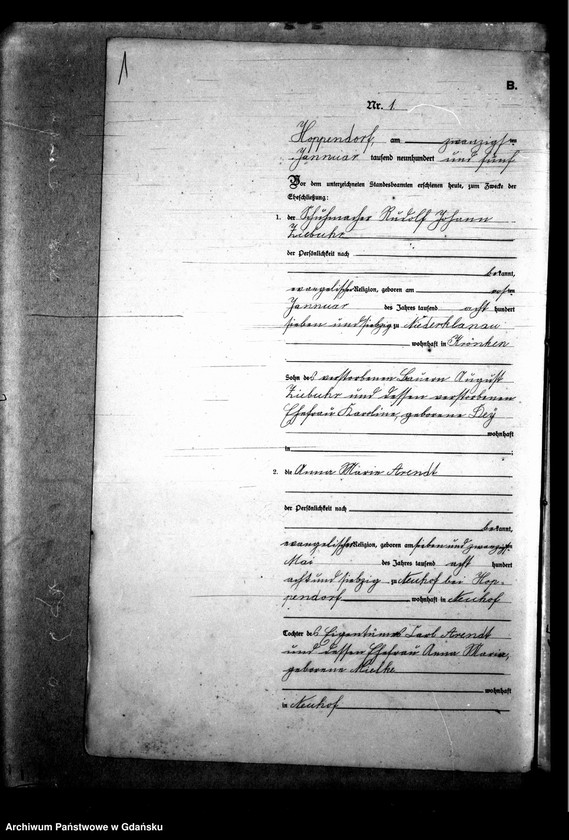 1
B.
Nr. 1
Hoppendorf, am zwanzigsten
Januar tausend neunhundert und fünf
Vor dem unterzeichneten Standesbeamten erschienen heute, zum Zwecke der
Eheschließung:
1. der Schuhmacher Rudolf Johann
Ziebuhr
der Persönlichkeit nach
bekannt,
evangelischer Religion, geboren am
Januar des Jahres tausend acht hundert
sieben und siebzig zu Niederklanau
wohnhaft in
Sohn des verstorbenen Bauern August
Ziebuhr und dessen verstorbenen
Ehefrau Karoline, geborene Dey
wohnhaft
in
2. die Anna Marie Arendt
der Persönlichkeit nach
bekannt,
evangelischer Religion, geboren am sieben und zwanzigsten
Mai des Jahres tausend acht hundert
acht und siebzig zu Neuhof bei Hop-
pendorf wohnhaft in Neuhof
Tochter des Eigentümers Carl Arendt
und dessen Ehefrau Anna Marie,
geborene Mielke
wohnhaft
in Neuhof
Archiwum Państwowe w Gdańsku